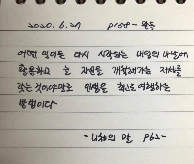 2020. 6. 27 p158 - 완독
어떤 일이든 다시 시작되는 내일의 나날에
활용하고 늘 자신을 개척해가는 자세를
갖는 것이야말로 인생을 최고로 여행하는
방법이다
- 니체의 말 p62 -